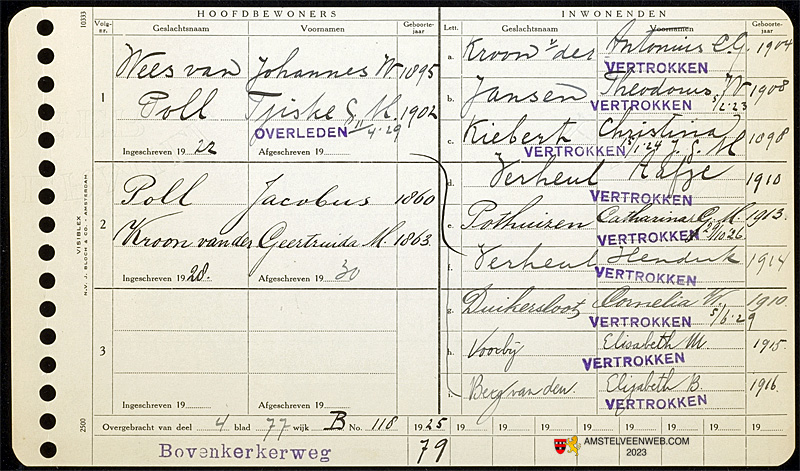 HOOFDBEWONERS
Volg-nr. Geslachtsnaam Voornamen Geboorte-jaar
1
Wees van Johannes W. 1895
Poll Tjiske S. M. 1902
OVERLEDEN 11/4.29
Ingeschreven 1922 Afgeschreven 19
2
Poll Jacobus 1860
Kroon van der Geertruida M. 1863.
Ingeschreven 1928. Afgeschreven 1930
3
Ingeschreven 19 Afgeschreven 19
INWONENDEN
Lett. Geslachtsnaam Voornamen Geboorte-jaar
a. Kroon v der Antonius C.G. 1904
VERTROKKEN
b. Jansen Theodorus W 1908
VERTROKKEN 5/2.23
c. Kiebert Christina J. G. M 1898
VERTROKKEN 5/1.24
d. Verheul Aafje 1910
VERTROKKEN
e. Pothuizen Catharina G. M. 1913.
VERTROKKEN 29/10 26.
f. Verheul Hendrik 1914
VERTROKKEN
g. Duikersloot Cornelia W. 1910
VERTROKKEN 5/6.29
h. Voorbij Elisabeth M. 1915.
VERTROKKEN
i. Berg van den. Elizabeth B. 1916.
VERTROKKEN
Overgebracht van deel 4 blad 77 wijk B No. 118 1925 19 19 19 19 19 19 19
Bovenkerkerweg 79
10333
VISIBLEX
N.V. J. BLOCH & CO. - AMSTERDAM
2500
AMSTELVEENWEB.COM
2023